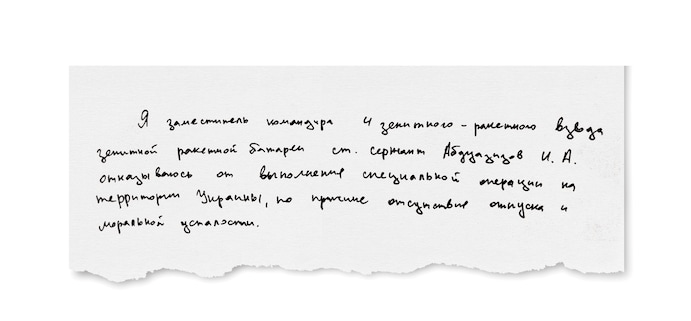 Я заместитель командира 4 зенитного-ракетного взвода
зенитной ракетной батареи ст. сержант Абдуазизов И. А.
отказываюсь от выполнения специальной операции на
территории Украины, по причине отсутствие отпуска и
моральной усталости.